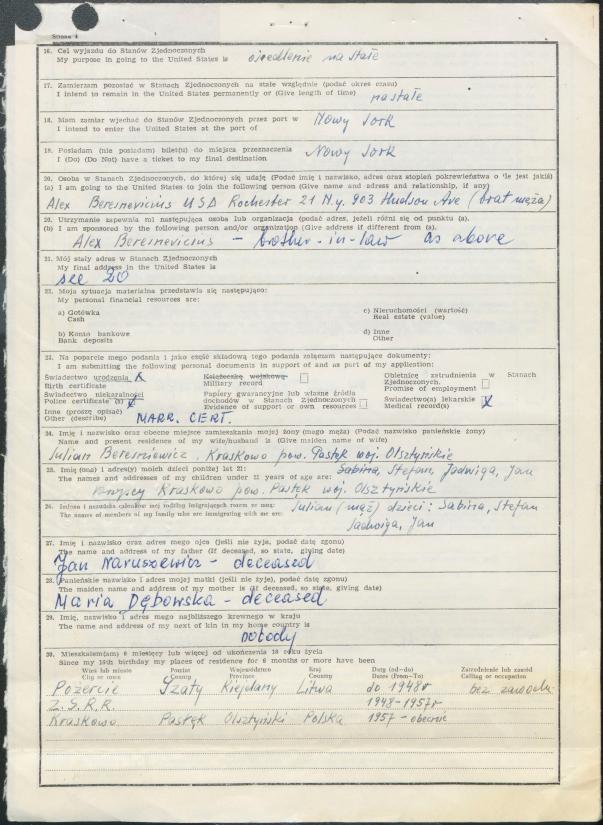 Strona 4
16. Cel wyjazdu do Stanów Zjednoczonych
My purpose in going to the United States is osiedlenie na stałe
17. Zamierzam pozostać w Stanach Zjednoczonych na stałe względnie (podać okres czasu)
I intend to remain in the United States permanently or (Give length of time) na stałe
18. Mam zamiar wjechać do Stanów Zjednoczonych przez port w
I intend to enter the United States at the port of Nowy Jork
19. Posiadam (nie posiadam) bilet(u) do miejsca przeznaczenia
I (Do) (Do Not) have a ticket to my final destination Nowy Jork
20. Osoba w Stanach Zjednoczonych, do której się udaję (Podać imię i nazwisko, adres oraz stopień pokrewieństwa o ile jest jakiś)
(a) I am going to the United States to join the following person (Give name and adress and relationship, if any)
Alex Beresnevicius USA Rochester 21 N.y. 903 Hudson Ave (brat męża)
20. Utrzymanie zapewnia mi następująca osoba lub organizacja (podać adres, jeżeli różni się od punktu (a).
(b) I am sponsored by the following person and/or organization (Give address if different from (a).
Alex Beresnevicius - brother-in-law as above
21. Mój stały adres w Stanach Zjednoczonych
My final address in the United States is
see 20
22. Moja sytuacja materialna przedstawia się następująco:
My personal financial resources are:
a) Gotówka
Cash
c) Nieruchomości (wartość)
Real estate (value)
b) Konto bankowe
Bank deposits
d) Inne
Other
23. Na poparcie mego podania i jako część składową tego podania załączam następujące dokumenty:
I am submitting the following personal documents in support of and as part of my application:
Świadectwo urodzenia X
Birth certificate
Książeczkę wojskową
Military record
Obietnicę zatrudnienia w Stanach
Zjednoczonych.
Promise of employment
Świadectwo niekaralności
Police certificate (s) X
Papiery gwarancyjne lub własne źródła
dochodów w Stanach Zjednoczonych
Evidence of support or own resources
Świadectwo(a) lekarskie
Medical record(s) X
Inne (proszę opisać)
Other (describe) MARR. CERT.
24. Imię i nazwisko oraz obecne miejsce zamieszkania mojej żony (mego męża) (Podać nazwisko panieńskie żony)
Name and present residence of my wife/husband is (Give maiden name of wife)
Julian Bereśniewicz, Kraskowo pow. Pasłęk woj. Olsztyńskie
25. Imię (ona) i adres(y) moich dzieci poniżej lat 21: Sabina, Stefan, Jadwiga, Jan
The names and addresses of my children under 21 years of age are:
wszyscy Kraskowo pow. Pasłęk woj. Olsztyńskie
26. Imiona i nazwiska członków mej rodziny imigrujących razem ze mną: Julian (mąż) dzieci: Sabina, Stefan
The names of members of my family who are immigrating with me are: Jadwiga, Jan
27. Imię i nazwisko oraz adres mego ojca (jeśli nie żyje, podać datę zgonu)
The name and address of my father (If deceased, so state, giving date)
Jan Naruszewicz - deceased
28. Panieńskie nazwisko i adres mojej matki (jeśli nie żyje), podać datę zgonu)
The maiden name and address of my mother is (If deceased, so state, giving date)
Maria Dębowska - deceased
29. Imię, nazwisko i adres mego najbliższego krewnego w kraju
The name and address of my next of kin in my home country is
nobody
30. Mieszkałem(am) 6 miesięcy lub więcej od ukończenia 18 roku życia
Since my 18th birthday my places of residence for 6 months or more have been
Wieś lub miasto Powiat Województwo Kraj Daty (od—do) Zatrudnienie lub zawód
City or town County Province Country Dates (From—To) Calling or occupation
Pożercie Szaty Kiejdany Litwa do 1948r bez zawodu
Z.S.R.R. 1948-1957r
Kraskowo Pasłęk Olsztyński Polska 1957 - obecnie